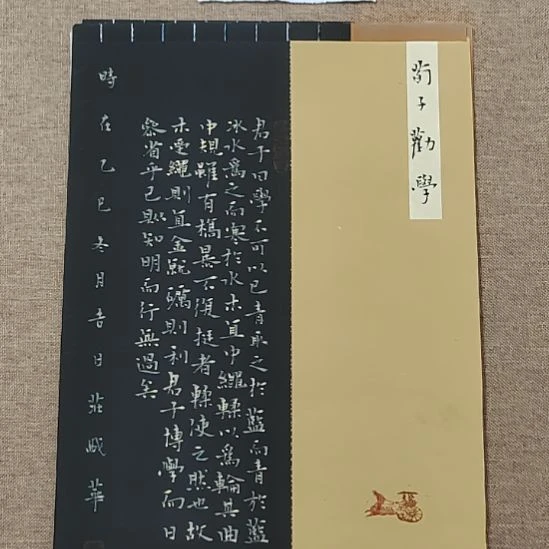 荀子勸學
君子曰學不可以已青取之於藍而青於藍
冰水爲之而寒於水木直中繩輮以爲輪其曲
中規雖有槁暴不復挺者輮使之然也故
木受繩則直金就礪則利君子博學而日
參省乎己則知明而行無過矣
時在乙巳冬月吉日莊
華